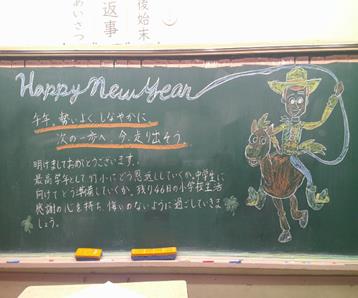 あいさつ
返事
後始末
Happy New Year
午年、勢いよく しなやかに
次の一歩へ 今、走り出そう
明けましておめでとうございます。
最高学年として
にどう恩返ししていくか、中学生に
向けてどう準備していくか、残り46日の小学校生活
感謝の心を持ち、悔いのないように過ごしていきま
しょう。